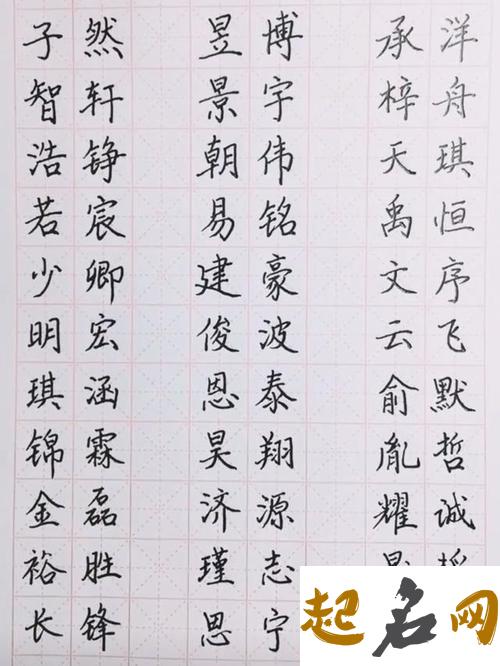 子然 昱博 承洋
智轩 景宇 梓舟
浩铮 朝伟 天琪
若宸 易铭 禹恒
少卿 建豪 文序
明宏 俊波 云飞
琪涵 恩泰 俞默
锦霖 昊翔 胤哲
金磊 济源 耀诚
裕胜 瑾志
长锋 思宁
起名网